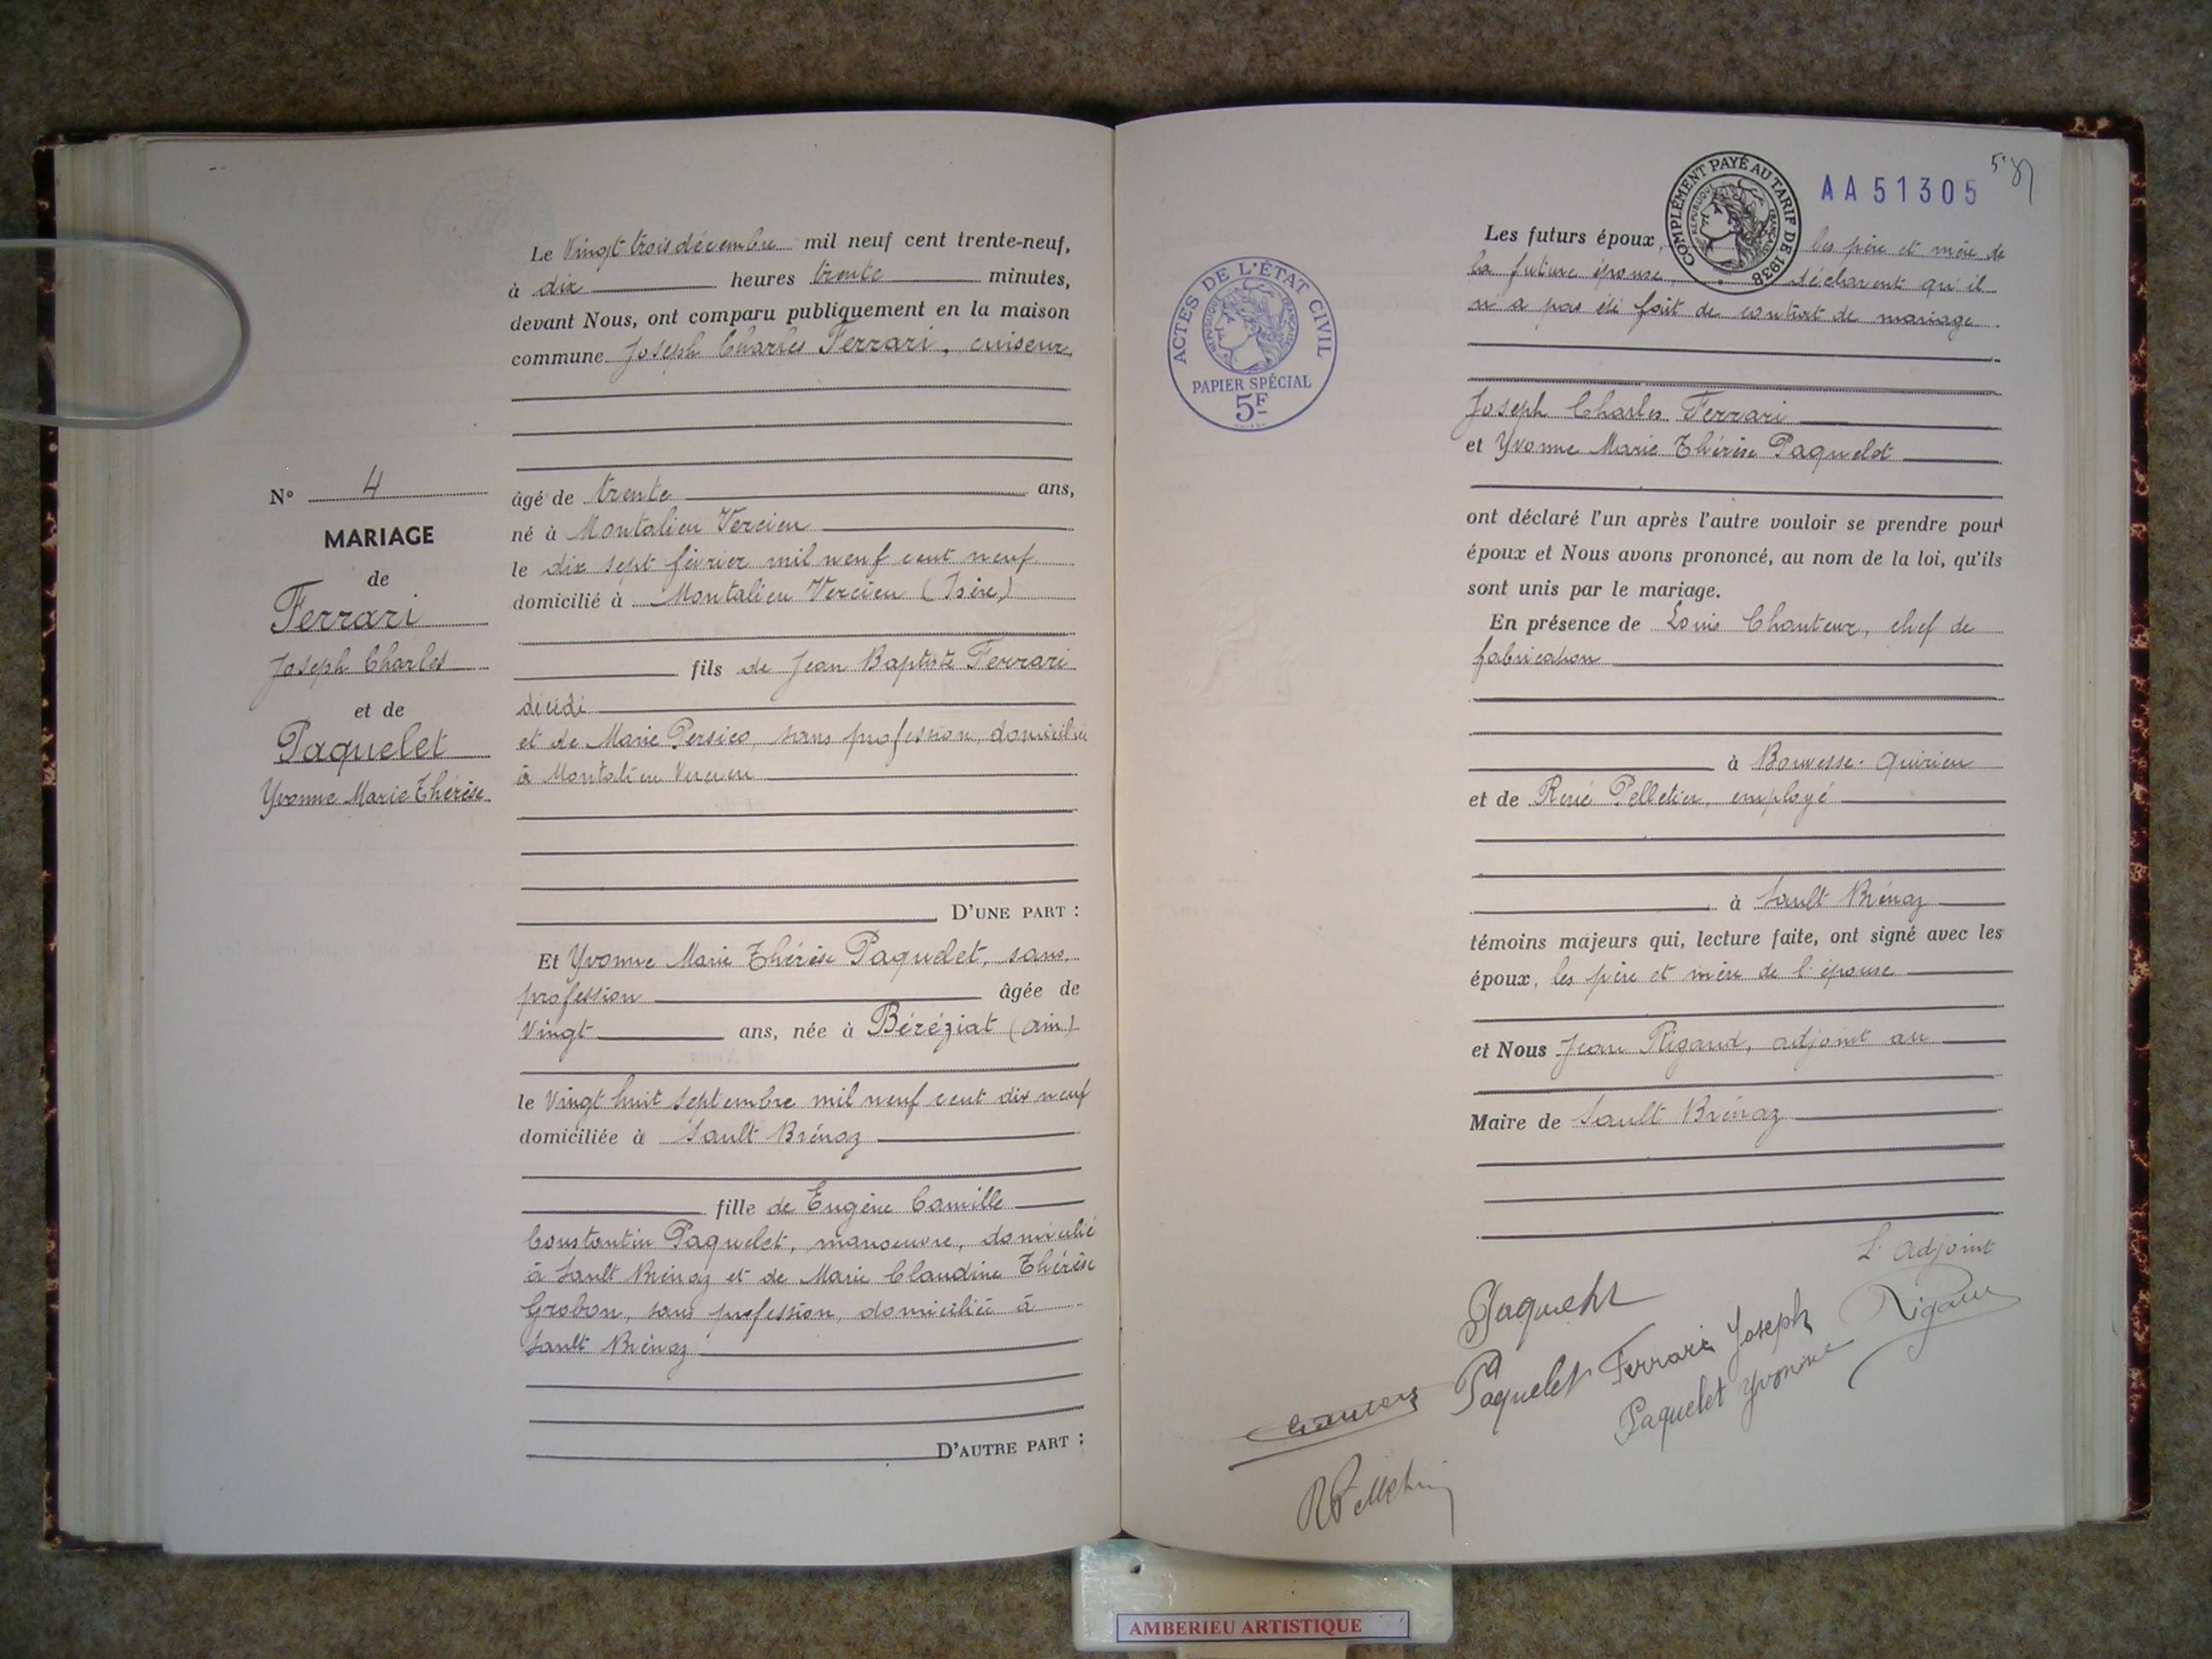 Le Vingt trois décembre mil neuf cent trente-neuf,
à dix heures trente minutes,
devant Nous, ont comparu publiquement en la maison
commune Joseph Charles Ferrari, cuiseur,
N° 4
MARIAGE
de
Ferrari
Joseph Charles
et de
Paquelet
Yvonne Marie Thérèse
âgé de trente ans,
né à Montalieu Vercieu
le dix sept février mil neuf cent neuf
domicilié à Montalieu Vercieu (Isère)
fils de Jean Baptiste Ferrari
décédé
et de Marie Persico, sans profession, domiciliée
à Montalieu Vercieu
D'UNE PART :
Et Yvonne Marie Thérèse Paquelet, sans
profession âgée de
Vingt ans, née à Béréziat (Ain)
le Vingt huit septembre mil neuf cent dix neuf
domiciliée à Sault Brénaz
fille de Eugène Camille
Constantin Paquelet, manoeuvre, domicilié
à Sault Brénaz et de Marie Claudine Thérèse
Grobon, sans profession, domiciliée à
Sault Brénaz
D'AUTRE PART :
AA51305
COMPLÉMENT PAYÉ AU TARIF DE 1938
RÉPUBLIQUE FRANÇAISE
ACTES DE L'ÉTAT CIVIL
RÉPUBLIQUE FRANÇAISE
PAPIER SPÉCIAL
5F
Les futurs époux, les père et mère de
la future épouse, déclarent qu'il
n'a pas été fait de contrat de mariage.
Joseph Charles Ferrari
et Yvonne Marie Thérèse Paquelet
ont déclaré l'un après l'autre vouloir se prendre pour
époux et Nous avons prononcé, au nom de la loi, qu'ils
sont unis par le mariage.
En présence de Louis Chanteur, chef de
fabrication
à Bouvesse-Quirieu
et de René Pelletier, employé
à Sault Brénaz
témoins majeurs qui, lecture faite, ont signé avec les
époux, les père et mère de l'épouse
et Nous Jean Rigaud, adjoint au
Maire de Sault Brénaz
L'adjoint
Rigaud
Paquelet
Paquelet Ferrari Joseph
Paquelet Yvonne
AMBERIEU ARTISTIQUE